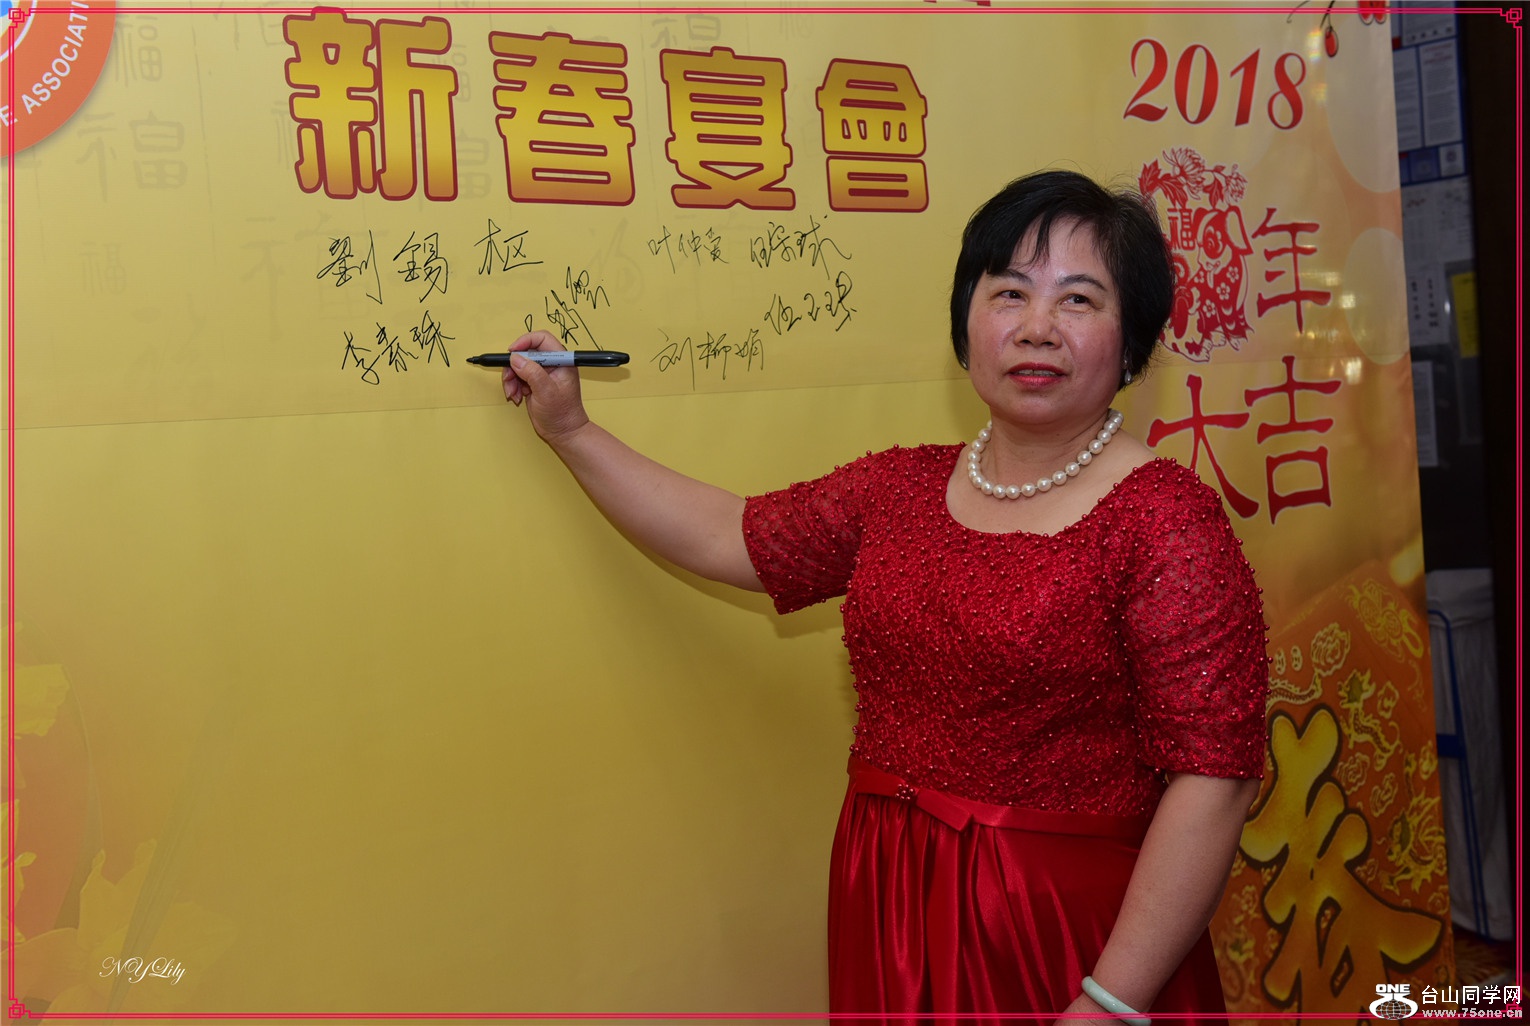 E ASSOCIATI
新春宴會
2018
福
年
大吉
劉錫枢
叶仲爱
刘柳娟
伍玉環
春
NYLily
ONE
台山同学网
www.75one.cn